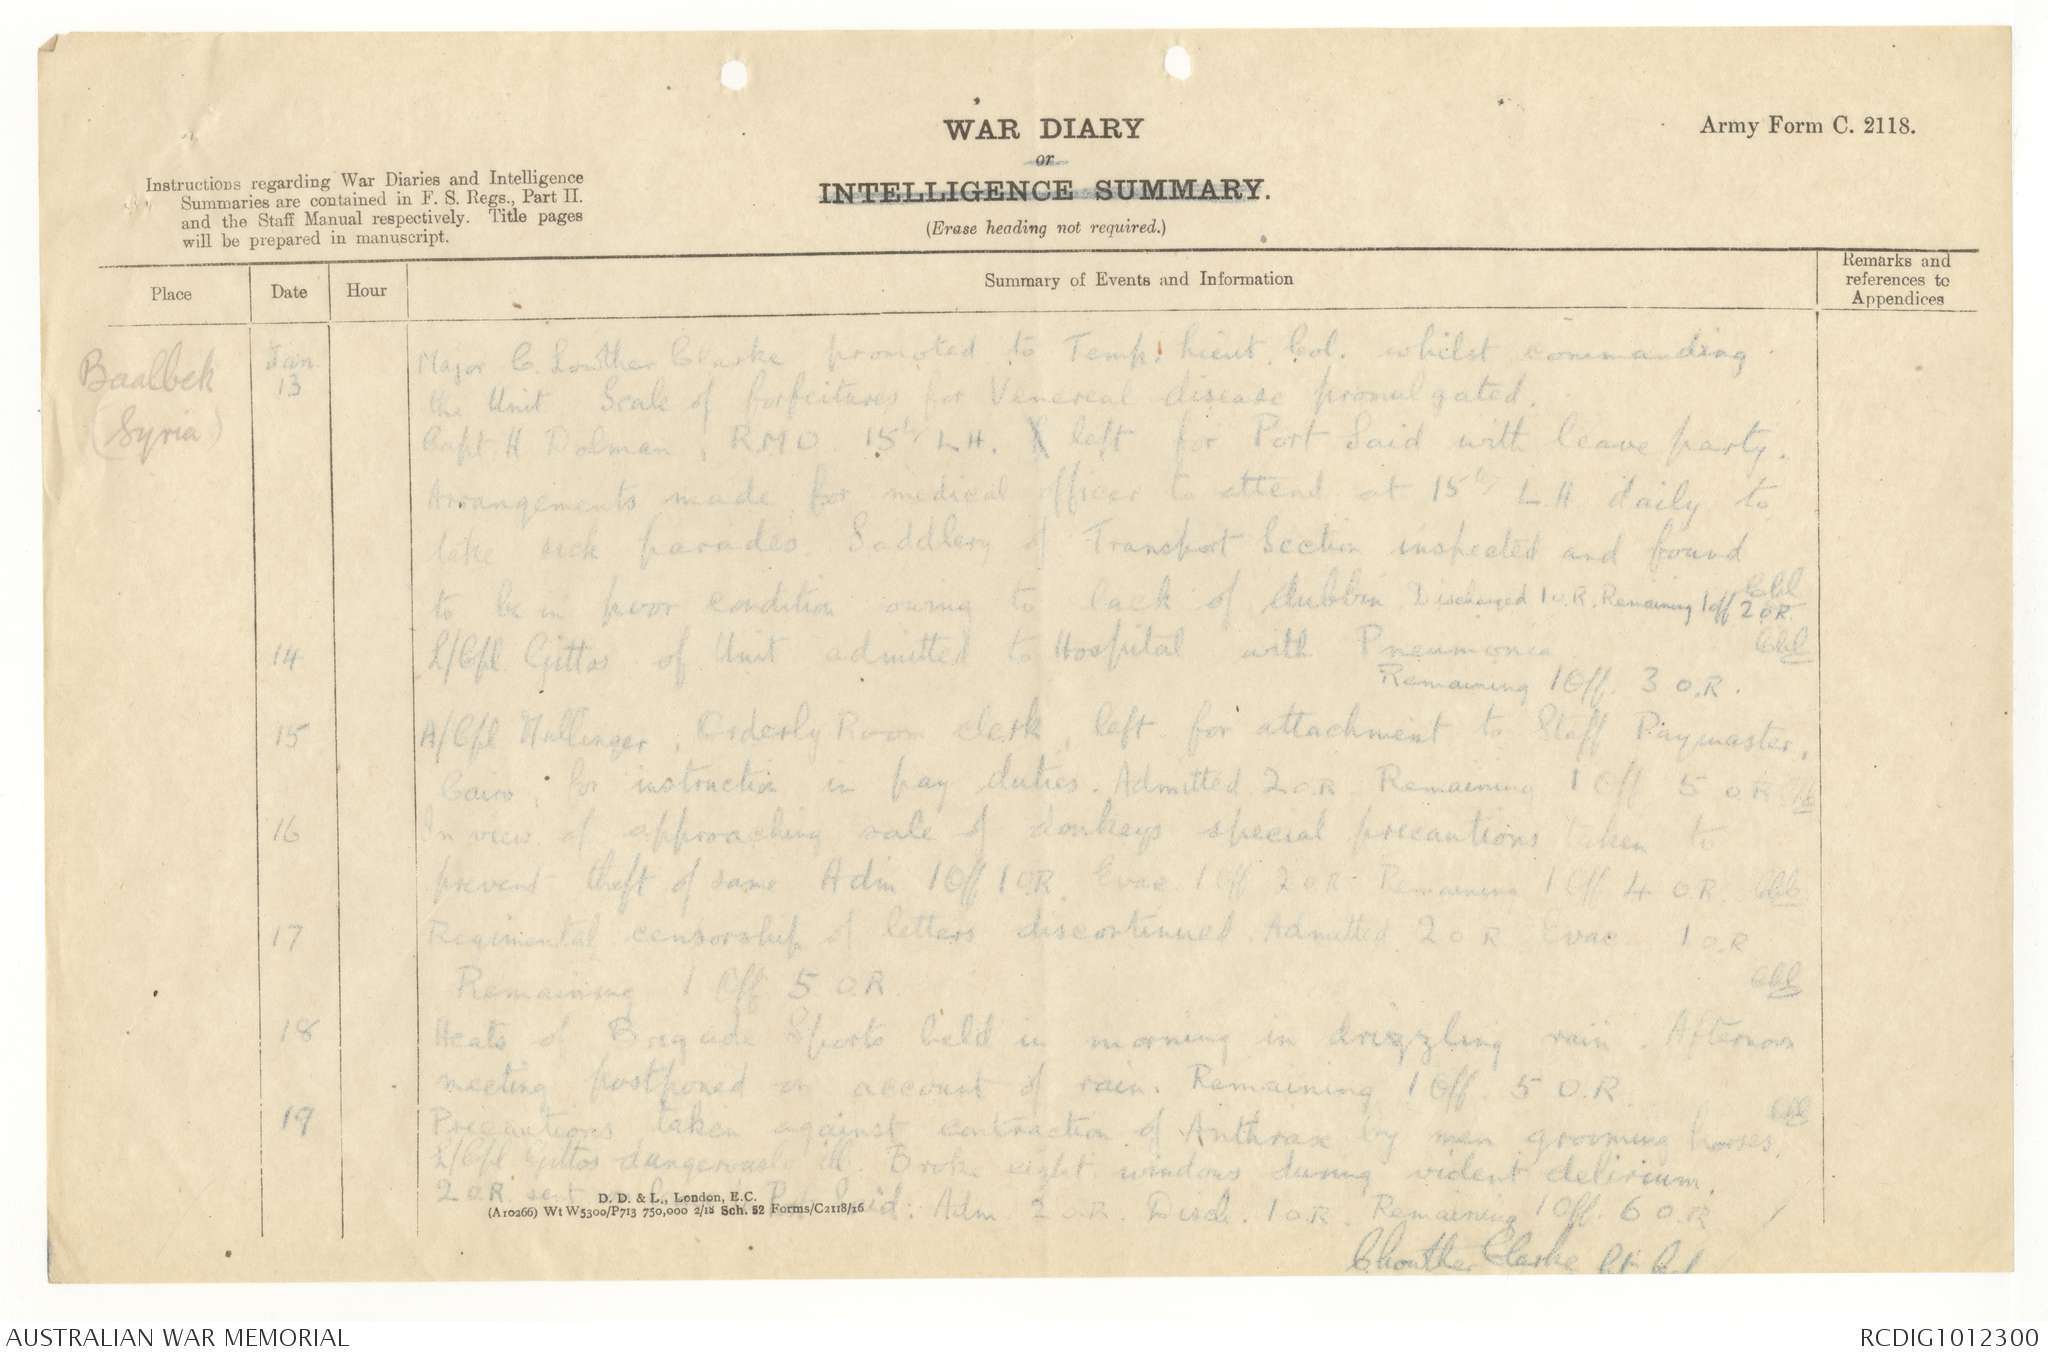 WAR DIARY
or
INTELLIGENCE SUMMARY.
(Erase heading not required.)
Army Form C. 2118.
Instructions regarding War Diaries and Intelligence
Summaries are contained in F. S. Regs., Part II.
and the Staff Manual respectively. Title pages
will be prepared in manuscript.
Place Date Hour Summary of Events and Information Remarks and references to Appendices
Baalbek Jan Major C. Louther Clarke promoted to Temp. Lieut. Col. whilst commanding
(Syria) 13 the Unit Scale of forfeitures for Venereal disease promulgated.
Capt. H Dolman, RMO 15th LH. left for Port Said with leave party.
Arrangements made for medical officer to attend at 15th L H daily to
take sick parades. Saddlery of Transport Section inspected and found
to be in poor condition owing to lack of dubbin Discharged 1 O.R. Remaining 1 Off 2 O.R. CLC
14 L/Cpl Gittos of Unit admitted to Hospital with Pneumonia CLC
Remaining 1 Off. 3 O.R.
15 A/Cpl Hullinger, Orderly Room clerk, left for attachment to Staff Paymaster,
Cairo, for instruction in pay duties. Admitted 2 O.R. Remaining 1 Off 5 O R CLC
16 In view of approaching sale of donkeys special precautions taken to
prevent theft of same Adm 1 Off 1 O.R. Evac. 1 Off 2 O.R. Remaining 1 Off 4 O.R. CLC
17 Regimental censorship of letters discontinued. Admitted 2 O R Evac 1 O.R
Remaining 1 Off 5 O.R CLC
18 Heats of Brigade Sports held in morning in drizzling rain. Afternoon
meeting postponed on account of rain. Remaining 1 Off. 5 O.R. CLC
19 Precautions taken against contraction of Anthrax by men grooming horses.
L/Cpl Gittos dangerously ill. Broke eight windows during violent delirium.
2 O.R. sent Port Said. Adm. 2 O.R. Disch. 1 O.R. Remaining 1 Off. 6 O.R
D. D. & L., London, E.C.
(A10266) Wt W5300/P713 750,000 2/18 Sch. 52 Forms/C2118/16
C Louther Clarke Lt. Col
AUSTRALIAN WAR MEMORIAL
RCDIG1012300